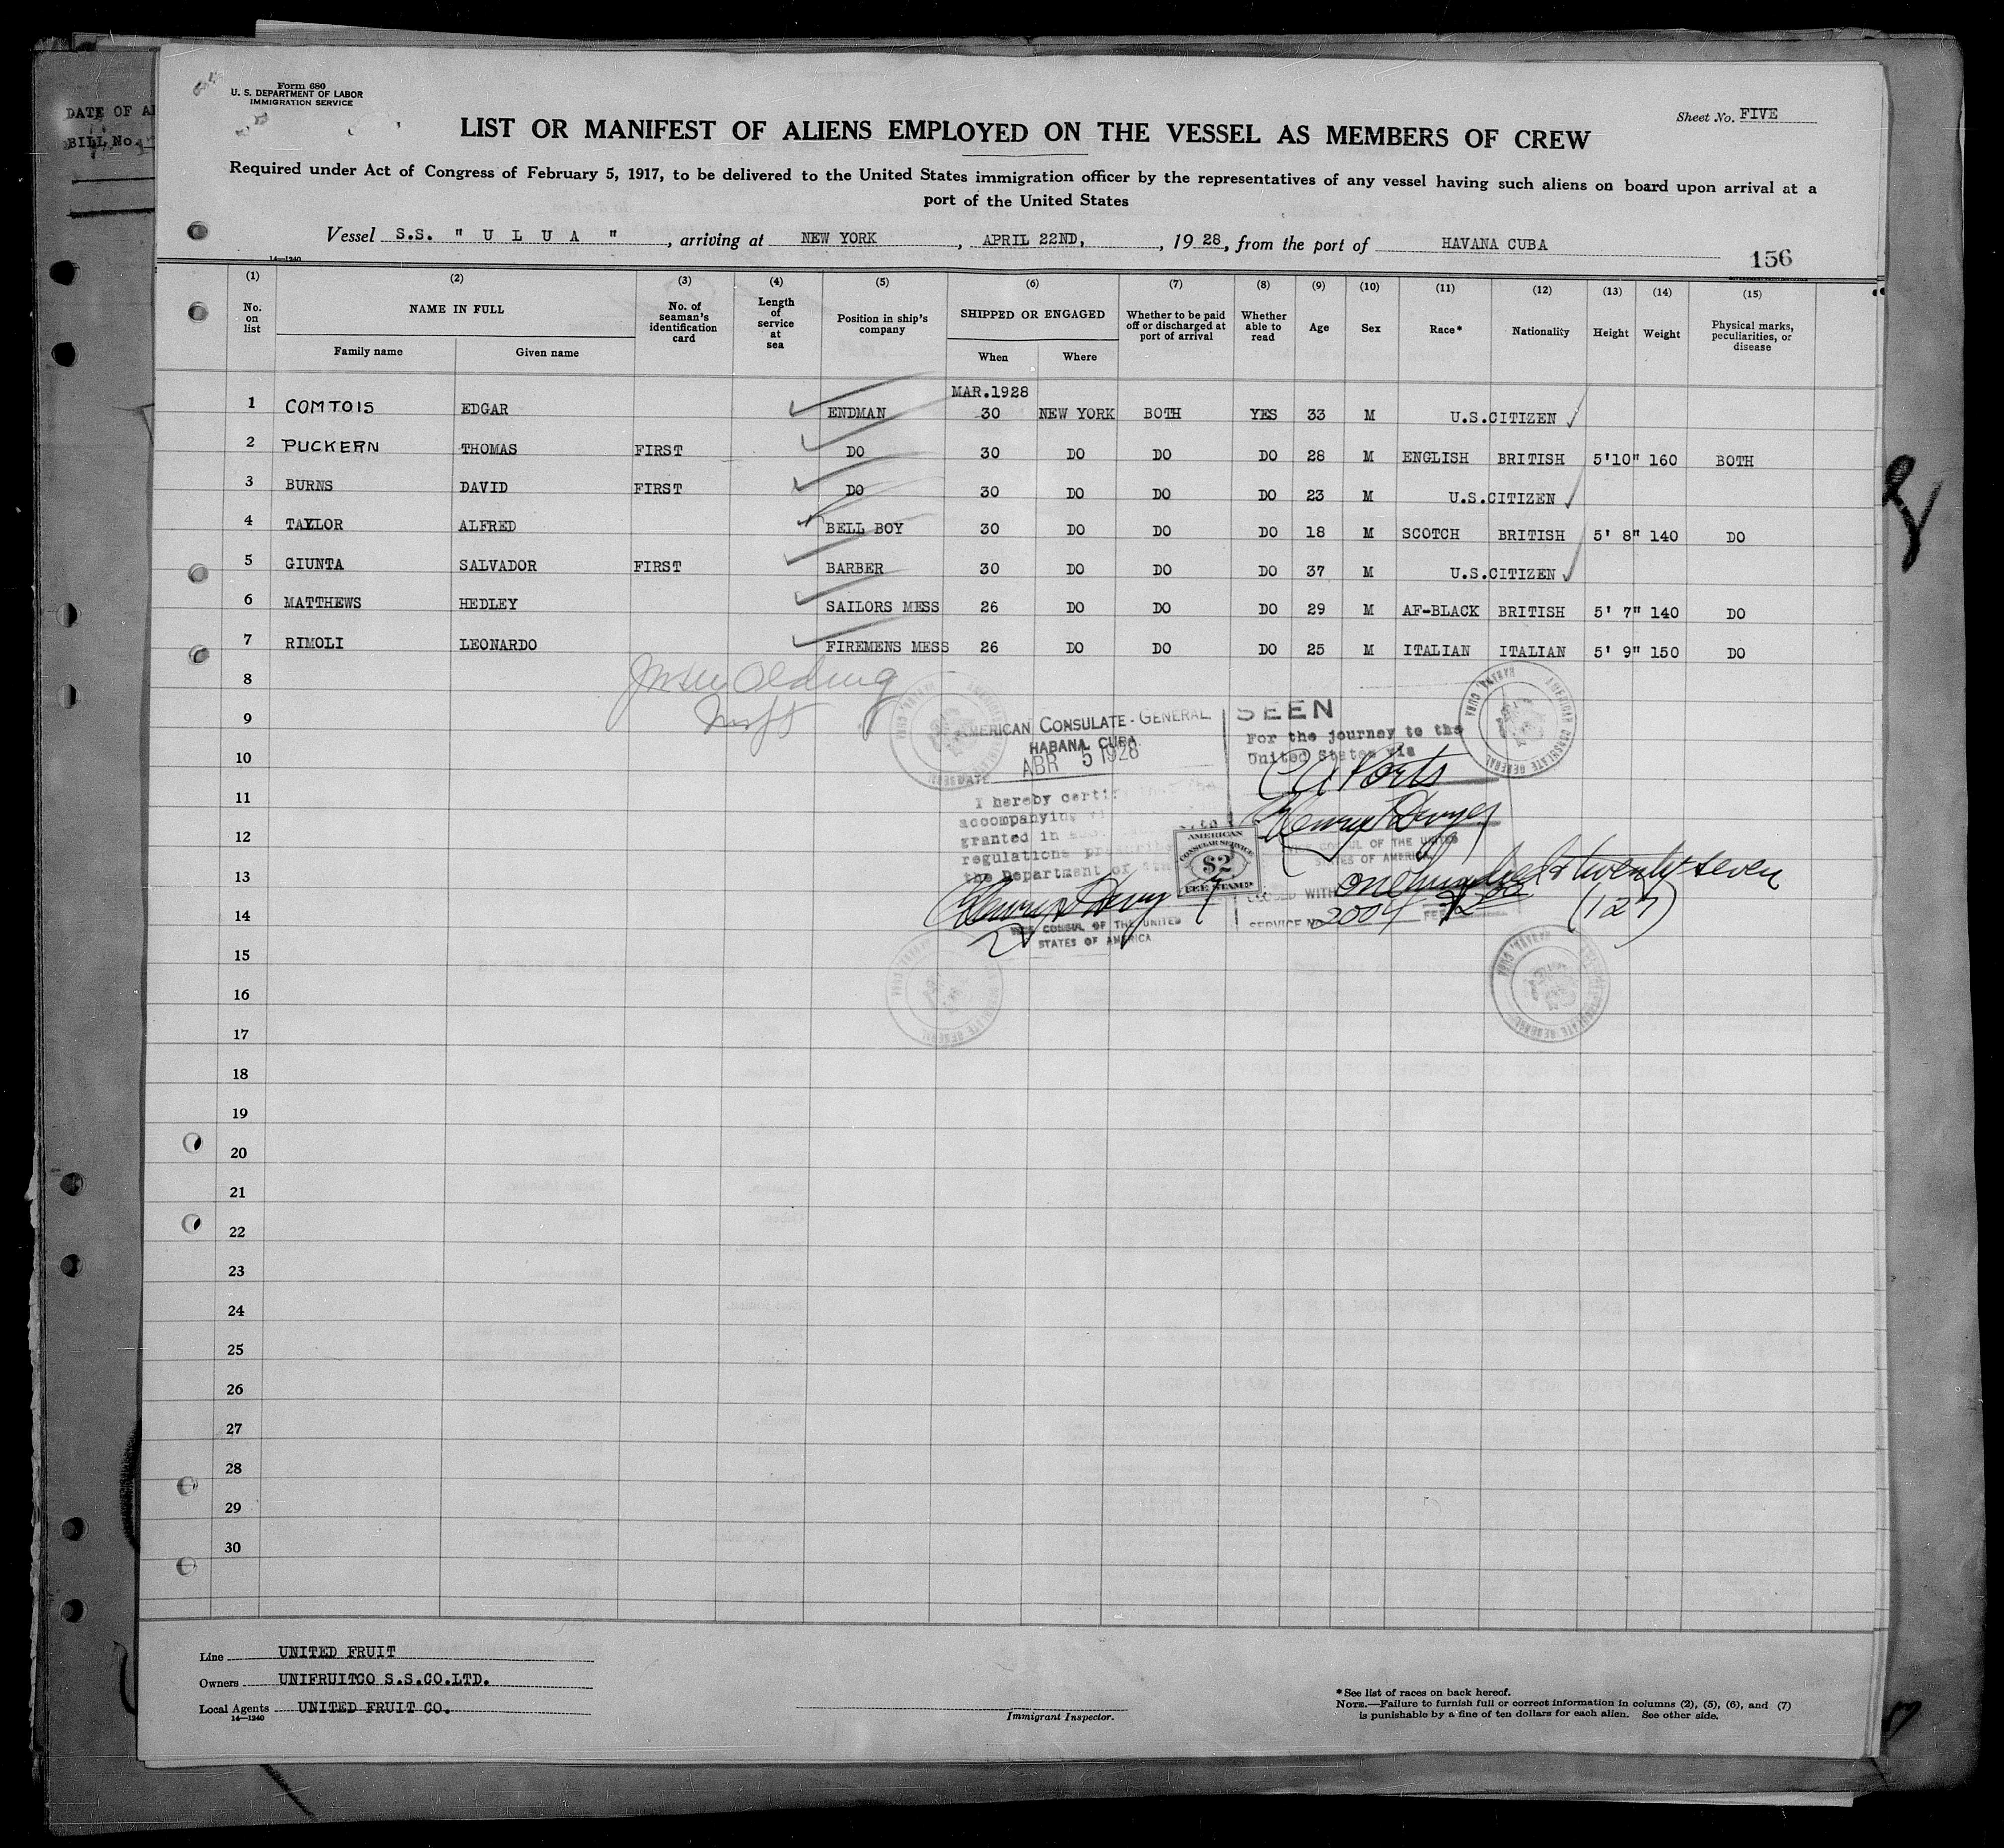 DATE OF
BILL No.
Form 680
U. S. DEPARTMENT OF LABOR
IMMIGRATION SERVICE
Sheet No. FIVE
LIST OR MANIFEST OF ALIENS EMPLOYED ON THE VESSEL AS MEMBERS OF CREW
Required under Act of Congress of February 5, 1917, to be delivered to the United States immigration officer by the representatives of any vessel having such aliens on board upon arrival at a
port of the United States
Vessel S.S. " U L U A ", arriving at NEW YORK, APRIL 22ND, , 1928, from the port of HAVANA CUBA
14—1240
156
(1) (2) (3) (4) (5) (6) (7) (8) (9) (10) (11) (12) (13) (14) (15)
No. on list NAME IN FULL No. of seaman's identification card Length of service at sea Position in ship's company SHIPPED OR ENGAGED Whether to be paid off or discharged at port of arrival Whether able to read Age Sex Race* Nationality Height Weight Physical marks, peculiarities, or disease
Family name Given name When Where
MAR.1928
1 COMTOIS EDGAR ENDMAN 30 NEW YORK BOTH YES 33 M U.S.CITIZEN ✓
2 PUCKERN THOMAS FIRST DO 30 DO DO DO 28 M ENGLISH BRITISH 5'10" 160 BOTH
3 BURNS DAVID FIRST DO 30 DO DO DO 23 M U.S.CITIZEN ✓
4 TAYLOR ALFRED BELL BOY 30 DO DO DO 18 M SCOTCH BRITISH 5' 8" 140 DO
5 GIUNTA SALVADOR FIRST BARBER 30 DO DO DO 37 M U.S.CITIZEN ✓
6 MATTHEWS HEDLEY SAILORS MESS 26 DO DO DO 29 M AF-BLACK BRITISH 5' 7" 140 DO
7 RIMOLI LEONARDO FIREMENS MESS 26 DO DO DO 25 M ITALIAN ITALIAN 5' 9" 150 DO
8
9
10
11
12
13
14
15
16
17
18
19
20
21
22
23
24
25
26
27
28
29
30
AMERICAN CONSULATE-GENERAL
HABANA, CUBA
ABR 5 1928
DATE
I hereby certify that the
accompanying
granted in
regulations
the Department of
VICE CONSUL OF THE UNITED
STATES OF AMERICA
AMERICAN
CONSULAR SERVICE
$2
FEE STAMP
SEEN
For the journey to the
United States via
VICE CONSUL OF THE UNITED
STATES OF AMERICA
WITH one hundred & twenty-seven
SERVICE No 2004 (127)
AMERICAN CONSULATE GENERAL HABANA, CUBA
Line UNITED FRUIT
Owners UNIFRUITCO S.S.CO.LTD.
Local Agents UNITED FRUIT CO.
14—1240
Immigrant Inspector.
*See list of races on back hereof.
NOTE.—Failure to furnish full or correct information in columns (2), (5), (6), and (7)
is punishable by a fine of ten dollars for each alien. See other side.